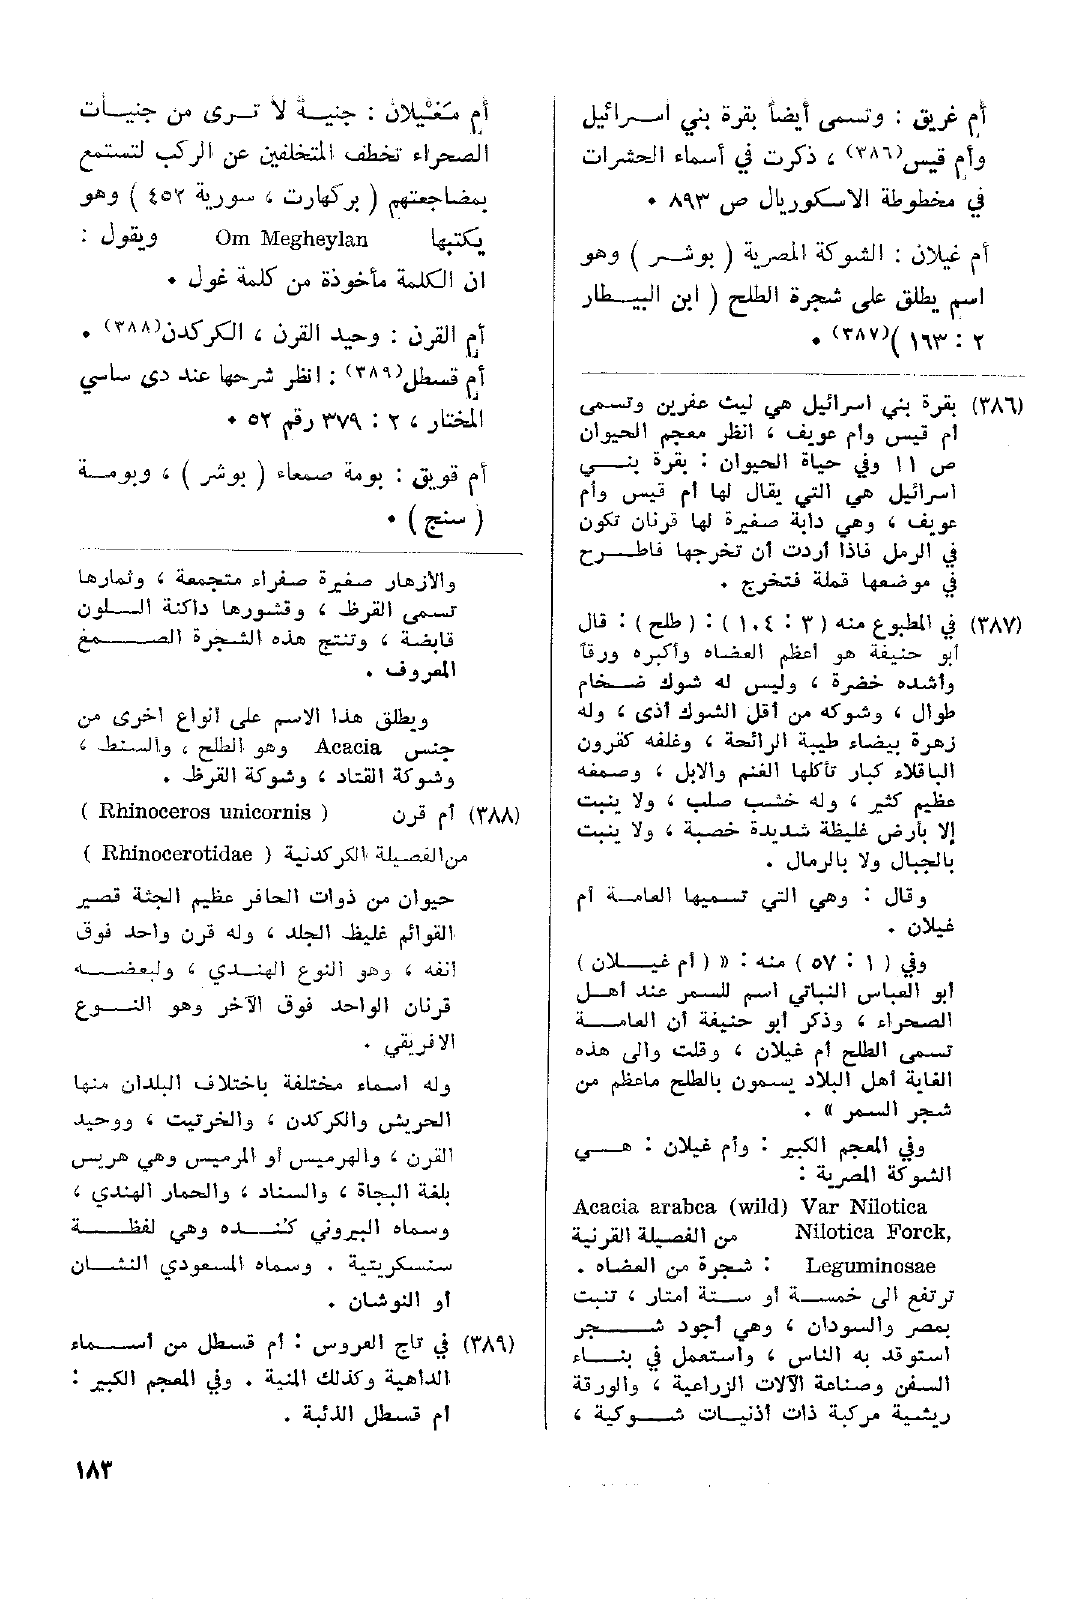 أم غريق : وتسمى أيضاً بقرة بني اسرائيل
وأم قيس(٣٨٦) ، ذكرت في أسماء الحشرات
في مخطوطة الاسكوريال ص ٨٩٣ .
أم غيلان : الشوكة المصرية ( بوشر ) وهو
اسم يطلق على شجرة الطلح ( ابن البيطار
٢ : ١٦٣ )(٣٨٧) .
(٣٨٦) بقرة بني اسرائيل هي ليث عفرين وتسمى
أم قيس وأم عويف ، انظر معجم الحيوان
ص ١١ وفي حياة الحيوان : بقرة بني
اسرائيل هي التي يقال لها أم قيس وأم
عويف ، وهي دابة صغيرة لها قرنان تكون
في الرمل فاذا أردت أن تخرجها فاطرح
في موضعها قملة فتخرج .
(٣٨٧) في المطبوع منه ( ٣ : ١٠٤ ) : ( طلح ) : قال
أبو حنيفة هو أعظم العضاه وأكبره ورقاً
وأشده خضرة ، وليس له شوك ضخام
طوال ، وشوكه من أقل الشوك أذى ، وله
زهرة بيضاء طيبة الرائحة ، وغلفه كقرون
الباقلاء كبار تأكلها الغنم والابل ، وصمغه
عظيم كثير ، وله خشب صلب ، ولا ينبت
إلا بأرض غليظة شديدة خصبة ، ولا ينبت
بالجبال ولا بالرمال .
وقال : وهي التي تسميها العامة أم
غيلان .
وفي ( ١ : ٥٧ ) منه : « ( أم غيلان )
أبو العباس النباتي اسم للسمر عند أهل
الصحراء ، وذكر أبو حنيفة أن العامة
تسمى الطلح أم غيلان ، وقلت والى هذه
الغاية أهل البلاد يسمون بالطلح ماعظم من
شجر السمر » .
وفي المعجم الكبير : وأم غيلان : هي
الشوكة المصرية :
Acacia arabca (wild) Var Nilotica
Nilotica Forck, من الفصيلة القرنية
Leguminosae : شجرة من العضاه .
ترتفع الى خمسة أو ستة أمتار ، تنبت
بمصر والسودان ، وهي أجود شجر
استوقد به الناس ، واستعمل في بناء
السفن وصناعة الآلات الزراعية ، والورقة
ريشية مركبة ذات أذنيات شوكية ،
أم مَغَيْلان : جنية لا ترى من جنيات
الصحراء تخطف المتخلفين عن الركب لتستمع
بمضاجعتهم ( بركهارت ، سورية ٤٥٢ ) وهو
يكتبها Om Megheylan ويقول :
ان الكلمة مأخوذة من كلمة غول .
أم القرن : وحيد القرن ، الكركدن(٣٨٨) .
أم قسطل(٣٨٩) : انظر شرحها عند دى ساسي
المختار ، ٢ : ٣٧٩ رقم ٥٢ .
أم قويق : بومة صمعاء ( بوشر ) ، وبومة
( سنج ) .
والازهار صغيرة صفراء متجمعة ، وثمارها
تسمى القرظ ، وقشورها داكنة اللون
قابضة ، وتنتج هذه الشجرة الصمغ
المعروف .
ويطلق هذا الاسم على أنواع اخرى من
جنس Acacia وهو الطلح ، والسنط ،
وشوكة القتاد ، وشوكة القرظ .
(٣٨٨) أم قرن ( Rhinoceros unicornis )
من الفصيلة الكركدنية ( Rhinocerotidae )
حيوان من ذوات الحافر عظيم الجثة قصير
القوائم غليظ الجلد ، وله قرن واحد فوق
انفه ، وهو النوع الهندي ، ولبعضه
قرنان الواحد فوق الآخر وهو النوع
الافريقي .
وله اسماء مختلفة باختلاف البلدان منها
الحريش والكركدن ، والخرتيت ، ووحيد
القرن ، والهرميس أو المرميس وهي هريس
بلغة البجاة ، والسناد ، والحمار الهندي ،
وسماه البيروني كنده وهي لفظة
سنسكريتية . وسماه المسعودي النشان
أو النوشان .
(٣٨٩) في تاج العروس : أم قسطل من أسماء
الداهية وكذلك المنية . وفي المعجم الكبير :
أم قسطل الذئبة .
١٨٣